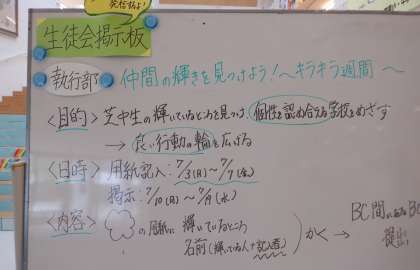 発信だよ!
生徒会掲示板
執行部 仲間の輝きを見つけよう!〜キラキラ週間〜
<目的> 芝中生の輝いているところを見つけ、個性を認め合える学校をめざす
→ 良い行動の輪を広げる
<日時> 用紙記入:7/3(月)〜7/7(金)
掲示:7/10(月)〜7/19(水)
<内容> の用紙に 輝いているところ
名前(輝いている人+記入者)
かく → BC間にある
提出